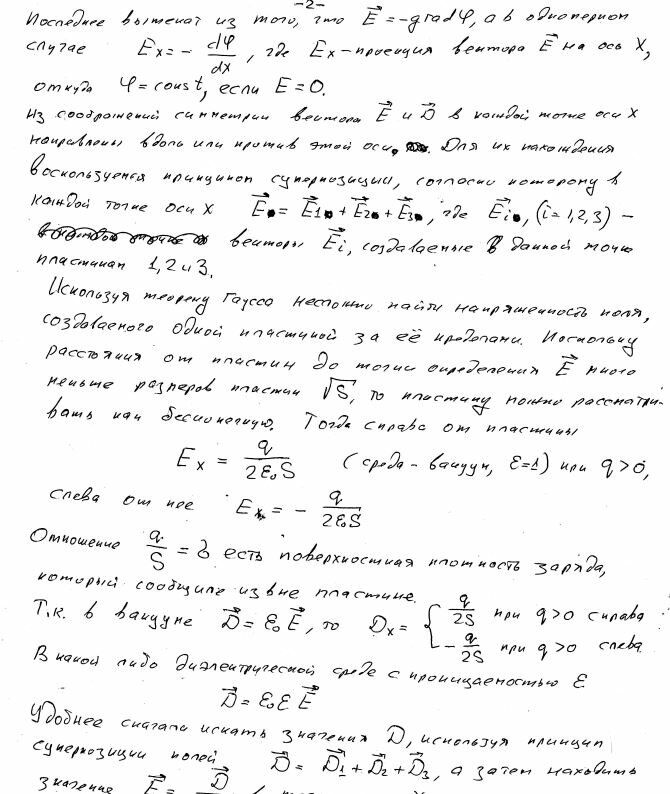 -2-
Последнее вытекает из того, что E⃗ = -gradφ, а в одномерном
случае Eₓ = - dφ/dx, где Eₓ - проекция вектора E⃗ на ось X,
откуда φ = const, если E = 0.
Из соображений симметрии вектора E⃗ и D⃗ в каждой точке оси X
направлены вдоль или против этой оси. Для их нахождения
воспользуемся принципом суперпозиции, согласно которому в
каждой точке оси X E⃗ = E⃗₁ + E⃗₂ + E⃗₃, где E⃗ᵢ, (i = 1,2,3) -
векторы E⃗ᵢ, создаваемые в данной точке
пластинами 1, 2 и 3.
Используя теорему Гаусса несложно найти напряженность поля,
создаваемого одной пластиной за её пределами. Поскольку
расстояния от пластин до точки определения E⃗ много
меньше размеров пластин √S, то пластину можно рассматри-
вать как бесконечную. Тогда справа от пластины
Eₓ = q/2ε₀S (среда - вакуум, ε=1) при q>0,
слева от нее Eₓ = - q/2ε₀S
Отношение q/S = δ есть поверхностная плотность заряда,
который сообщили извне пластине.
Т.к. в вакууме D⃗ = ε₀E⃗, то Dₓ = { q/2S при q>0 справа
- q/2S при q>0 слева
В какой либо диэлектрической среде с проницаемостью ε
D⃗ = ε₀εE⃗
Удобнее сначала искать значения D, используя принцип
суперпозиции полей D⃗ = D⃗₁ + D⃗₂ + D⃗₃, а затем находить
значение E⃗ = D⃗